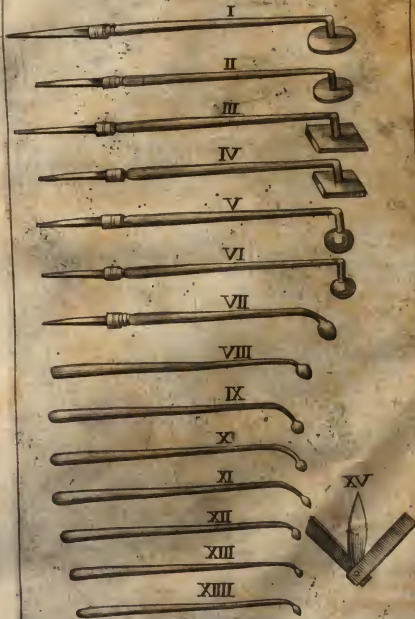 I
II
III
IV
V
VI
VII
VIII
IX
X
XI
XII
XIII
XV
XIIII